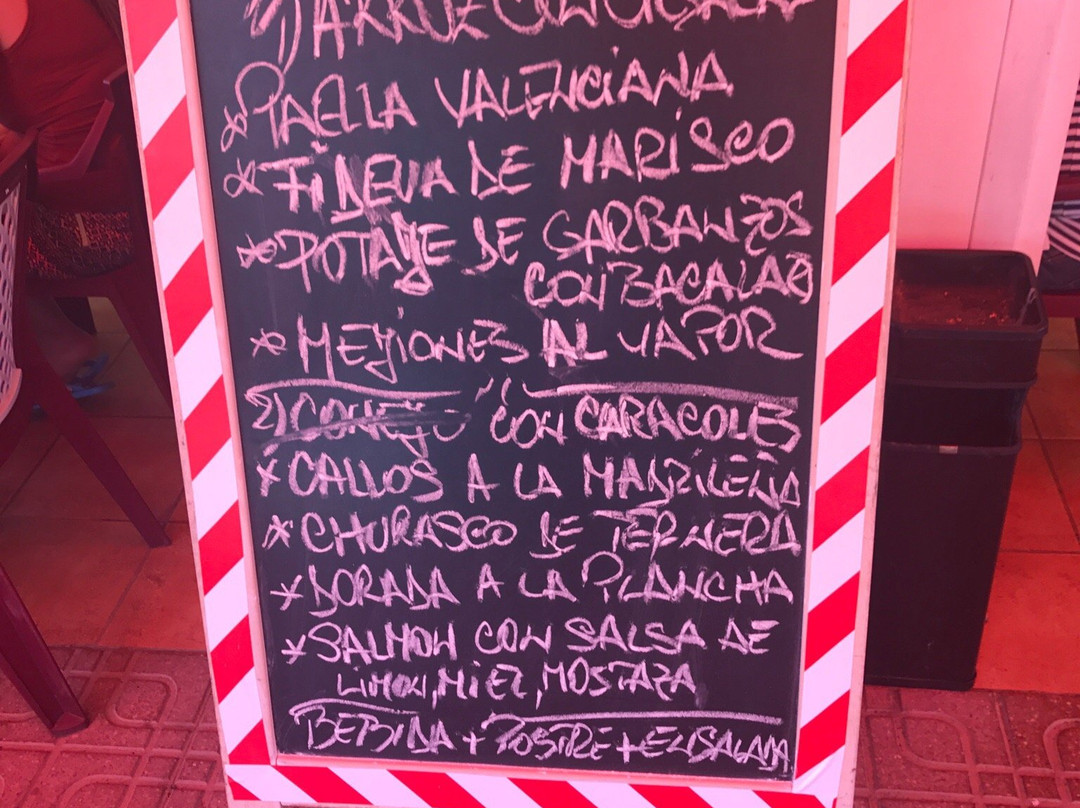 1) ARROZ CON
* PAELLA VALENCIANA
* FIDEUA DE MARISCO
* POTAJE DE GARBANZOS
CON BACALAO
* MEJIONES AL VAPOR
2) CONEJO CON CARACOLES
* CALLOS A LA MADRILEÑA
* CHURASCO DE TERNERA
* DORADA A LA PLANCHA
* SALMON CON SALSA DE
LIMON, MIEL, MOSTAZA
BEBIDA + POSTRE + ENSALADA